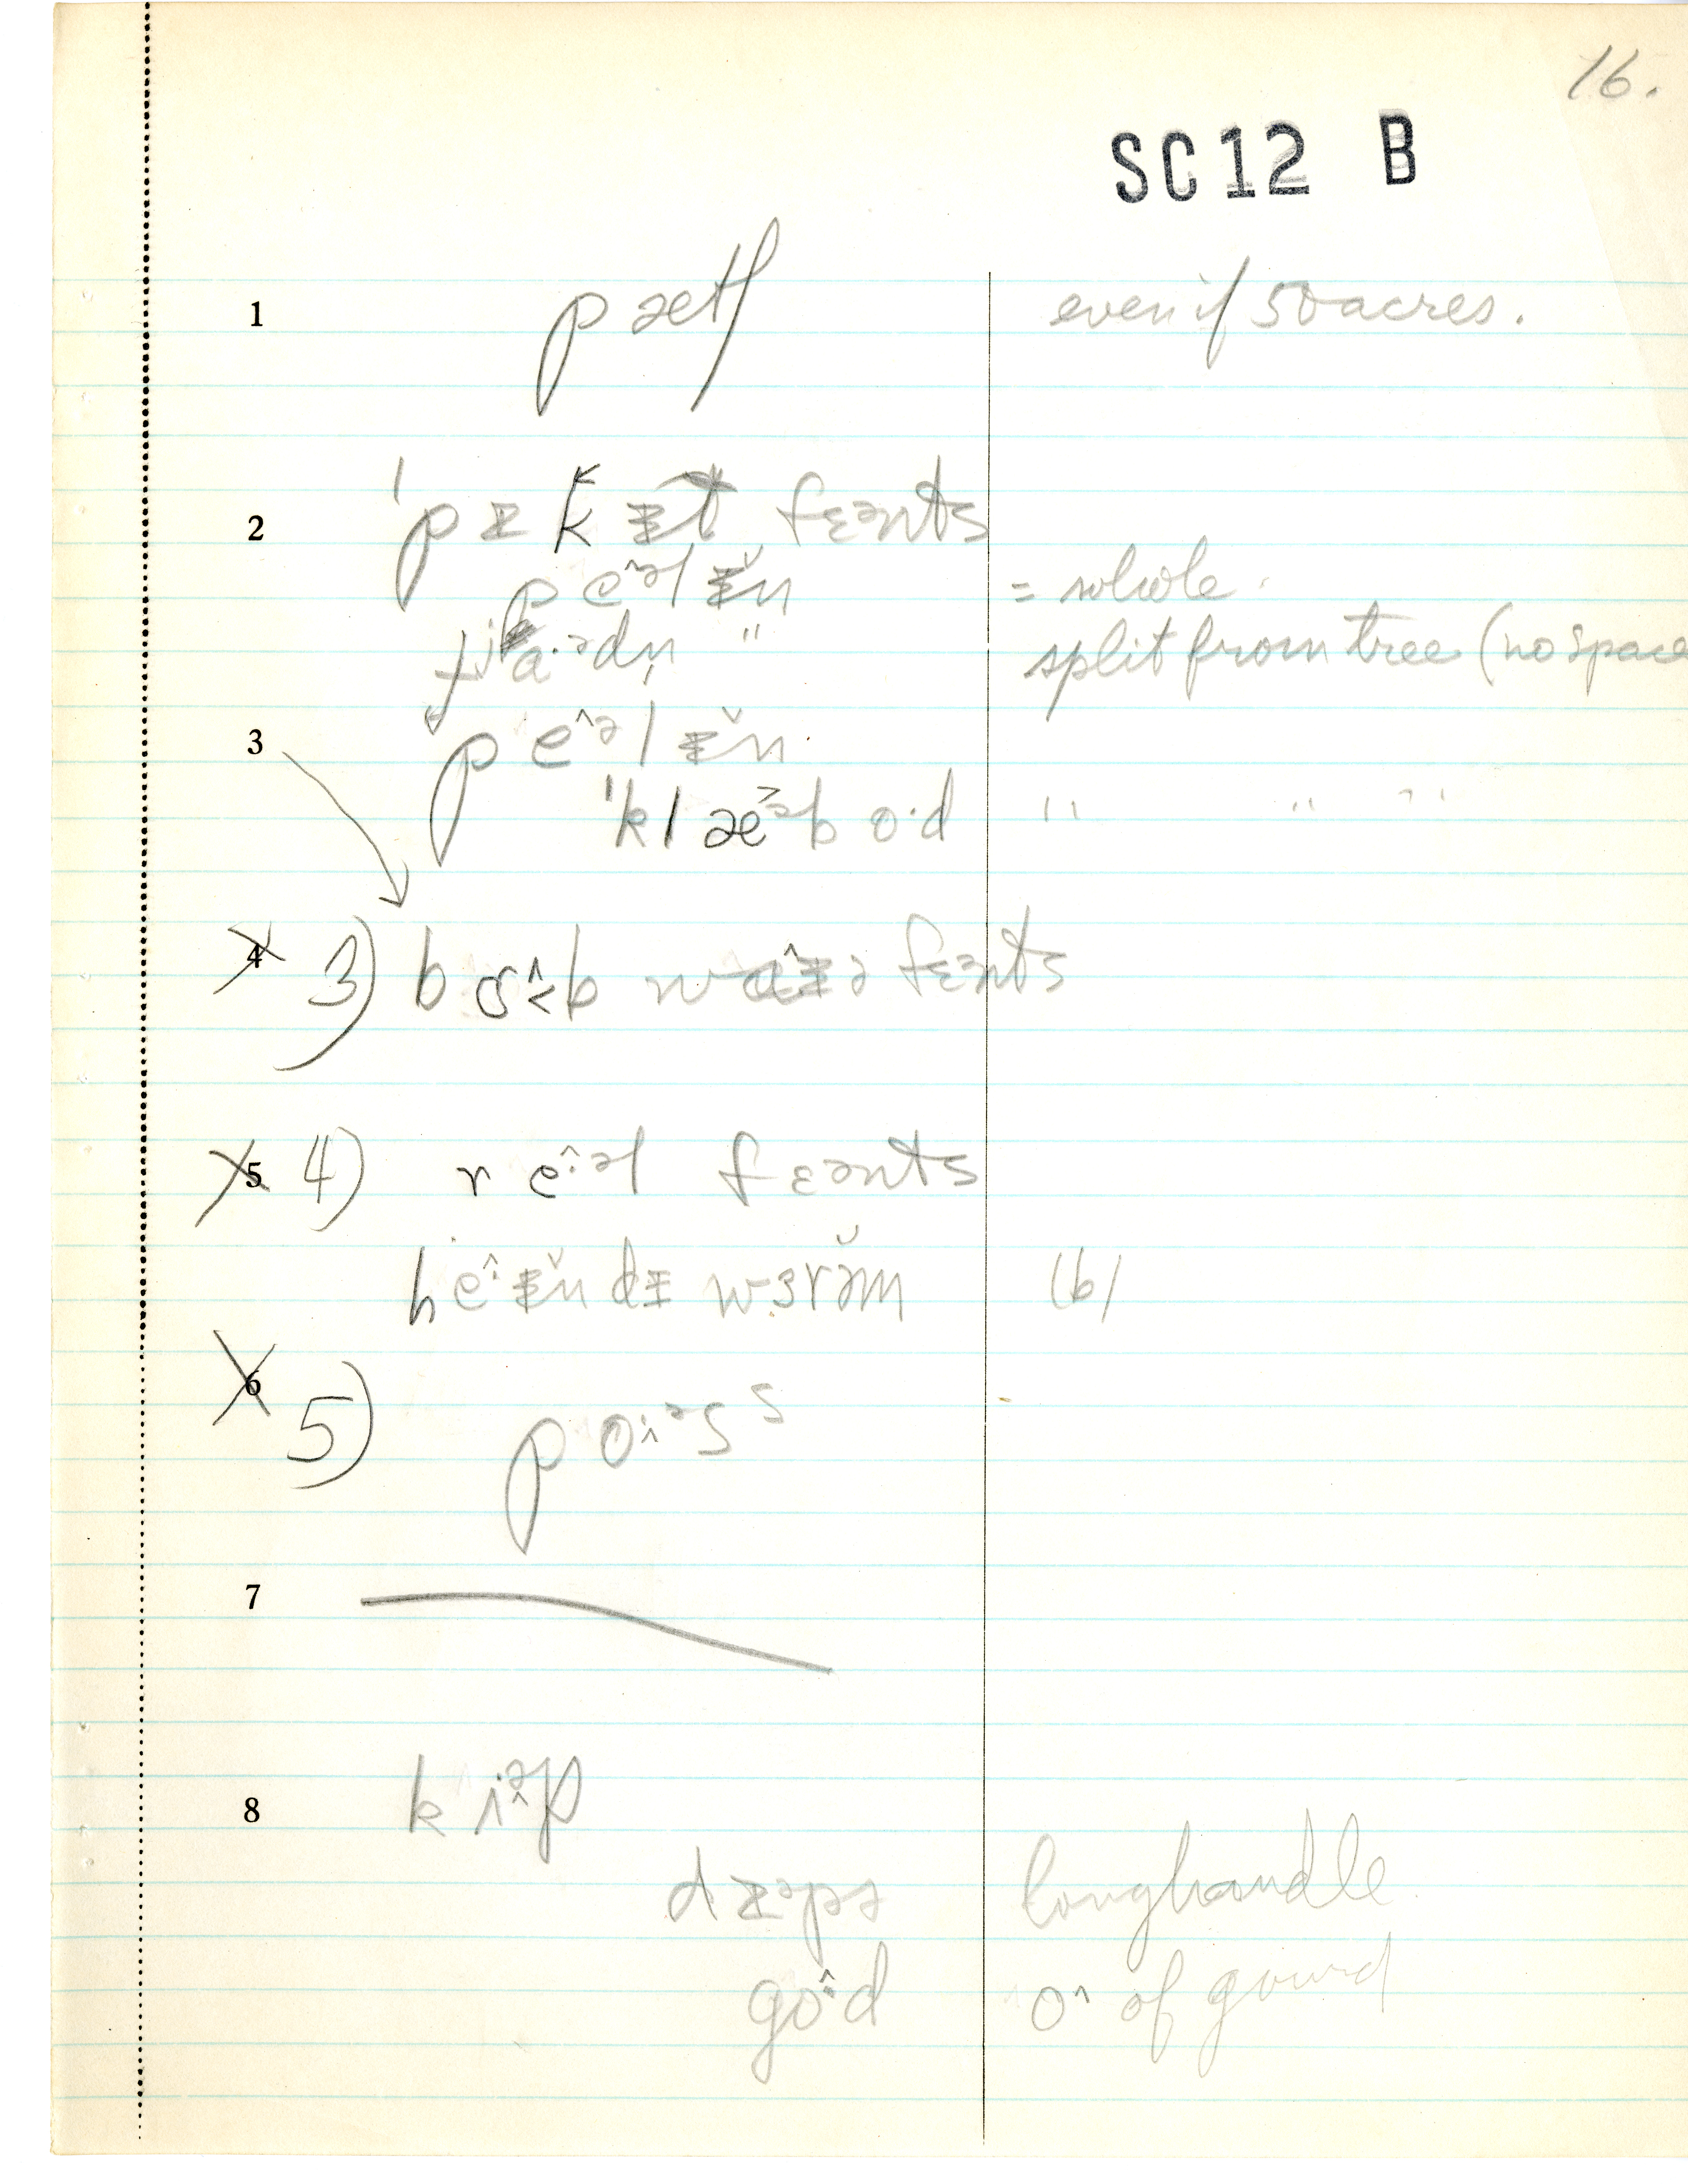 16.
SC12 B
1 pætʃ even if 50 acres.
2 ˈpɪkɪt fɛənts
peˆəlɪ̆n = whole.
gjɑ·ədn̩ " split from tree (no space
3 peˆəlɪ̆n
ˈklæ˃əbo·d " " "
4 3) bɔˆ˂b wɑˆɪə fɛənts
5 4) reˆ·əl fɛənts
heˆ·ɪ̆n dɪ wɜrə̆m (6)
6 5) poˆ·əsˢ
7
8 kiˆ·əp
dɪəpə longhandle
goˆ·d oˆ of gourd